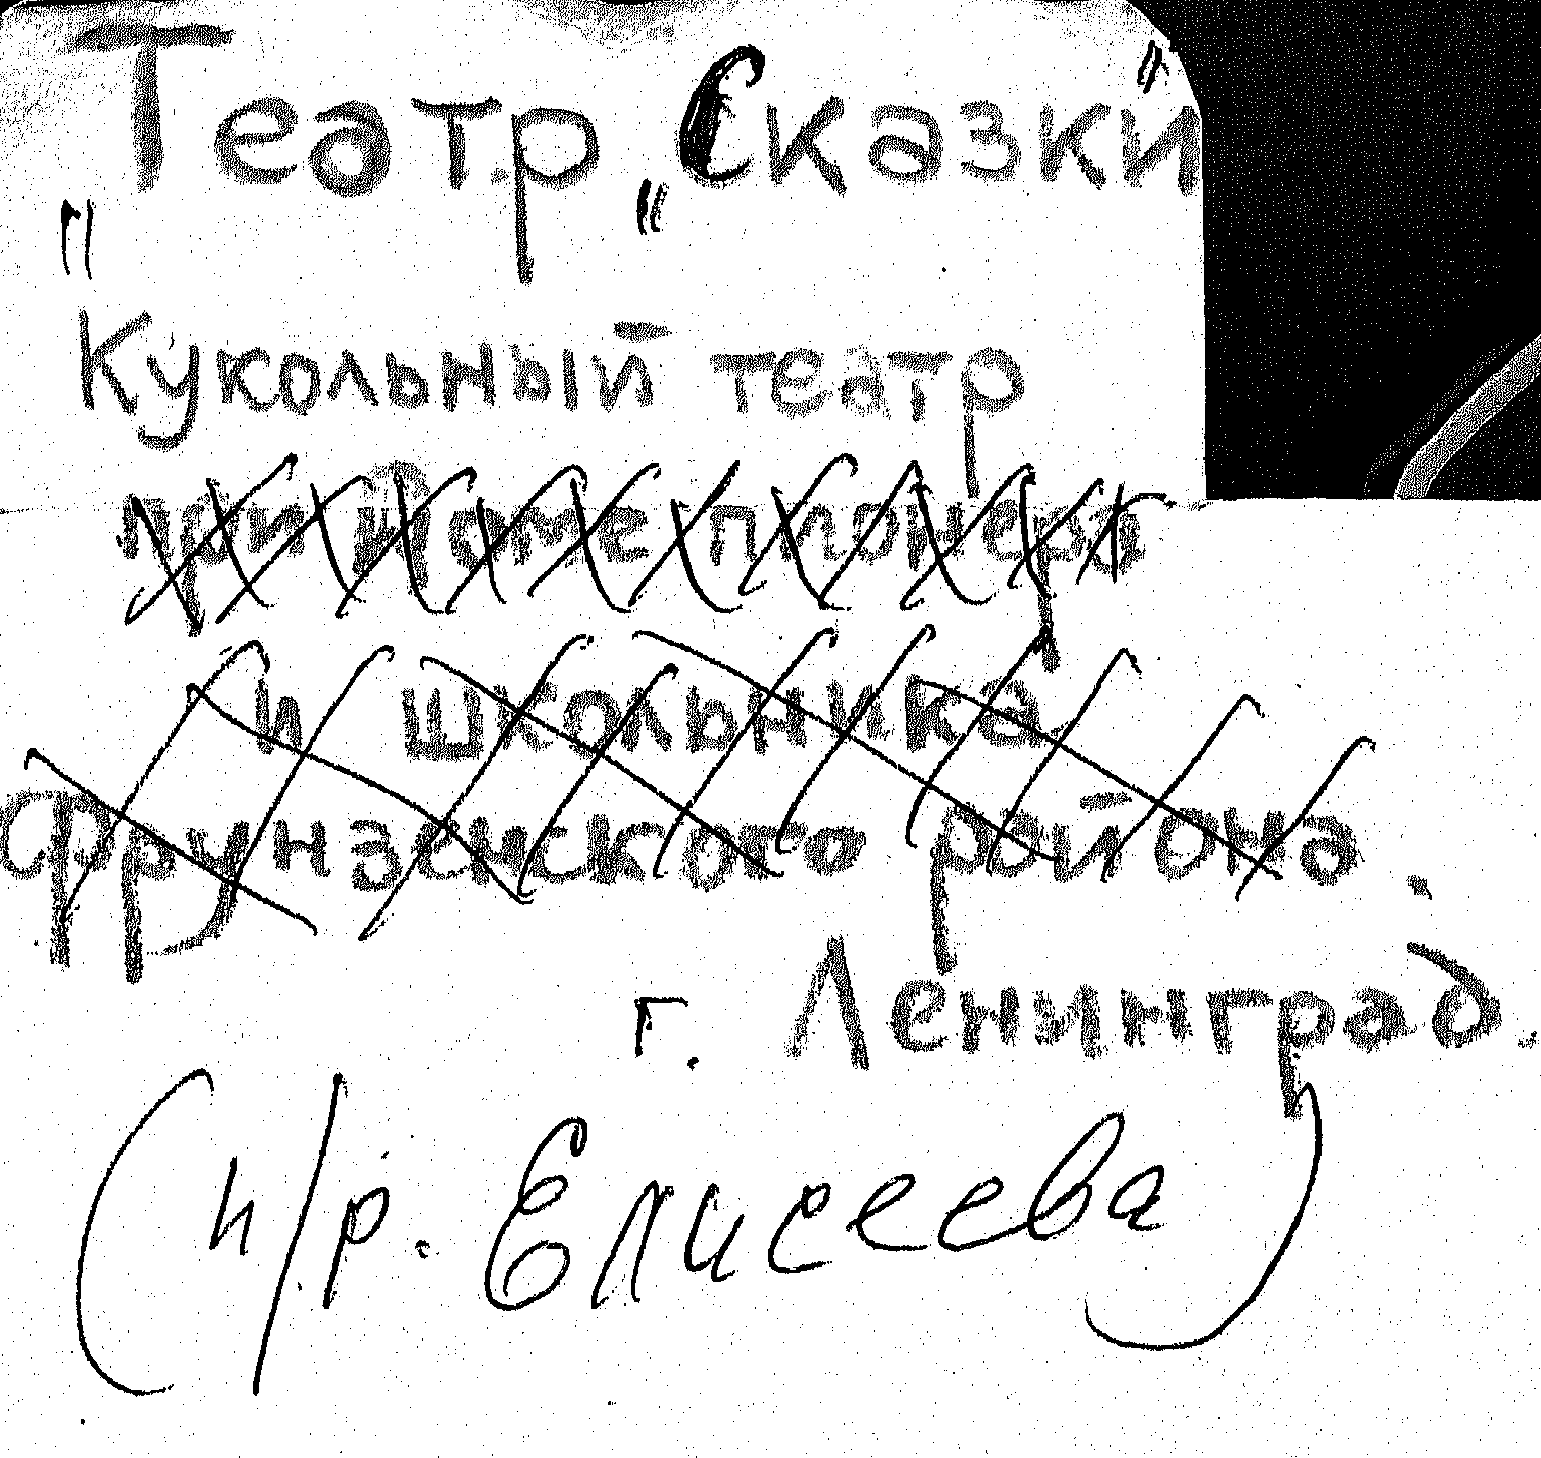 Театр „Сказки"
„
Кукольный театр
при Доме пионера
и школьника
Фрунзенского района.
г. Ленинград.
(п/р. Елисеева)